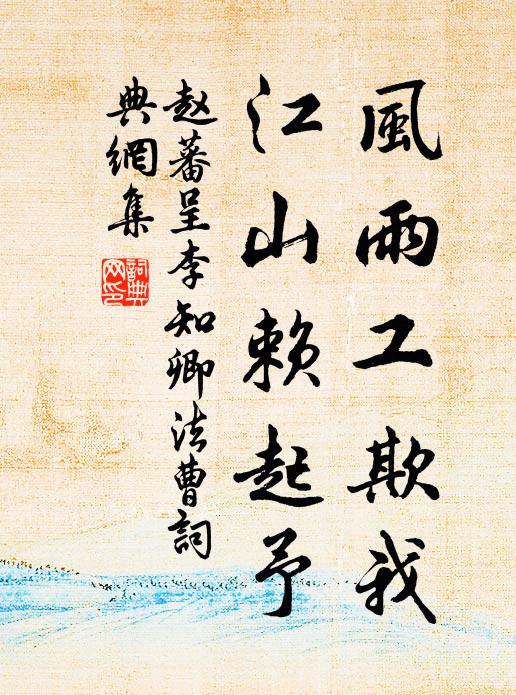 風雨工欺我
江山賴起予
赵蕃呈李知卿法曹詞
典網集
詞典
网印